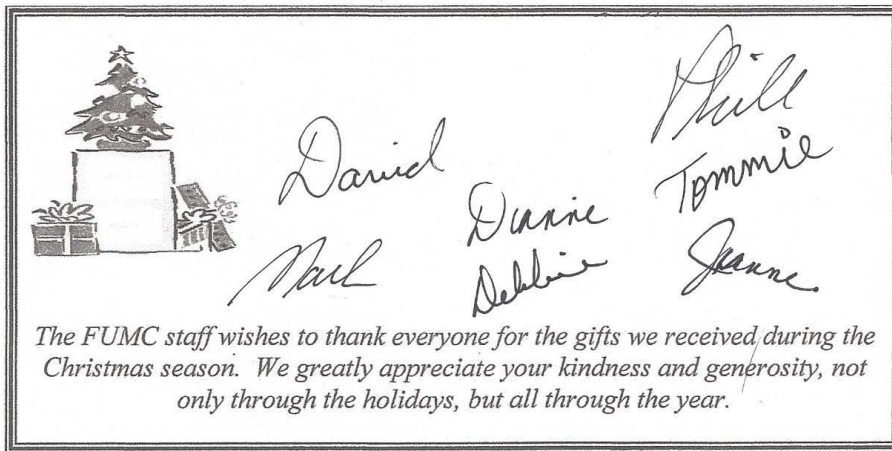 Phill
David
Tommie
Dianne
Mark
Debbie
Jeanne
The FUMC staff wishes to thank everyone for the gifts we received during the
Christmas season. We greatly appreciate your kindness and generosity, not
only through the holidays, but all through the year.